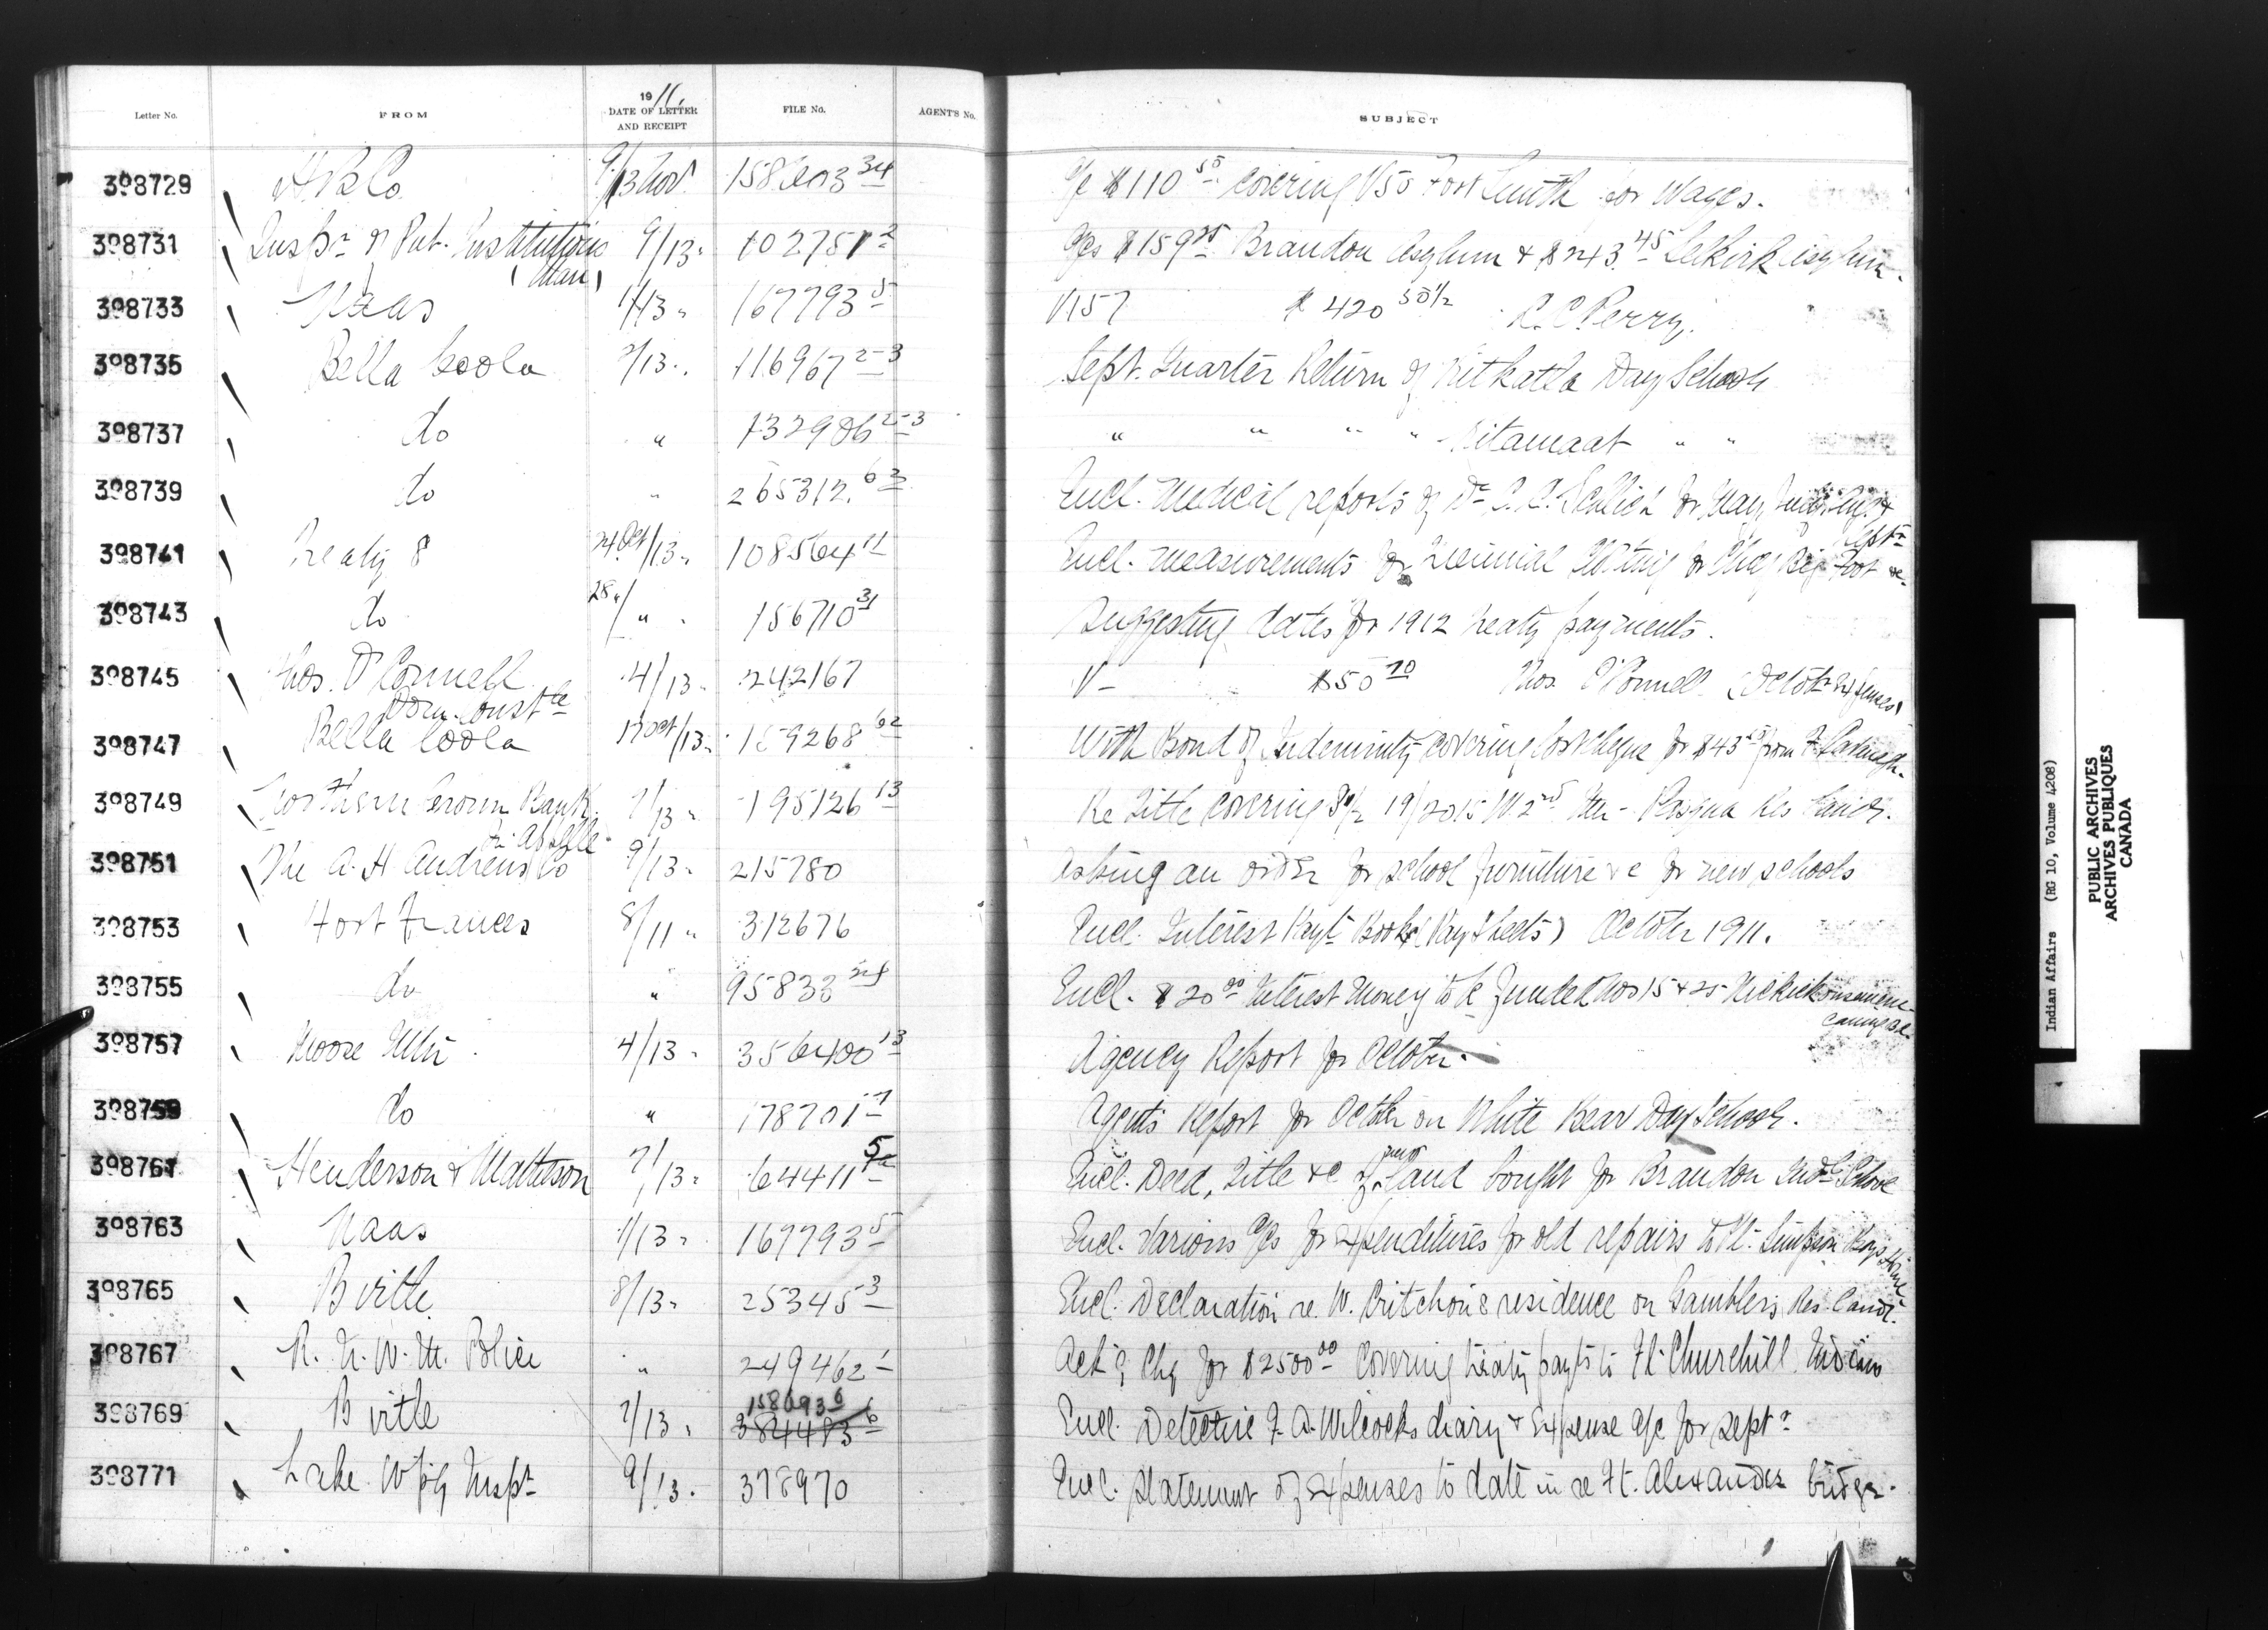 Letter No. FROM 1911. DATE OF LETTER AND RECEIPT FILE No. AGENT'S No. SUBJECT
398729 H B Co. 9/13 Nov. 34 a/c $110 50 covering V50 Fort Smith for Wages.
398731 Inspr of Pub. Institutions (Man) 9/13 " 102751 2 a/cs $159 Brandon Asylum & $243.45 Selkirk Asylum.
398733 Naas 1/13 " 167793 5 V157 $420 50 1/2 C. C. Perry.
398735 Bella Coola 2/13 " 116967 2-3 Sept. Quarter Return of Kitkatla Day School
398737 do " 132986 2-3 " " " " Kitamaat " "
398739 do " 265312 Encl. Medical reports of Dr for May, Augt & Septr
398741 Treaty 8 24 Oct/13 " 108564 11 Encl. measurements for Triennial Clothing for Chief Big Foot &c
398743 do 28 "/ " 156710 31 Suggesting dates for 1912 Treaty payments.
398745 Thos. O'Connell Dom. Constle 4/13 " 242167 V- $50 70 Thos. O'Connell (October Expenses)
398747 Bella Coola Oct/13 " 159268 62 With Bond of Indemnity covering lost cheque for $43 from F.
398749 Northern Crown Bank Qu'Appelle 7/13 " 195126 13 Re Title covering 19/20 15 W 2nd Mer - Pasqua Res Lands.
398751 The A. H. Andrews Co 9/13 " 215780 Asking an order for school furniture &c for new schools
398753 Fort Frances 8/11 " 312676 Encl. Interest Payt Books (Pay Sheets) October 1911.
398755 do " 95833 Encl. $20 00 Interest Money to be funded Nos 15 & 25
398757 Moose Mtn 4/13 " 356400 13 Agency Report for October.
398759 do " 178701 Agents Report for October on White Bear Day School.
398761 Henderson & Matheson 7/13 " 64411 5 Encl. Deed, Title &c of new Land bought for Brandon Indl School
398763 Naas 1/13 " 167793 5 Encl. Various a/cs for Expenditures for old repairs to Pt. Simpson Boys Home
398765 Birtle 8/13 " 25345 3 Encl. Declaration re. W. Critchon's residence on Gamblers Res. Lands.
398767 R. N. W. M. Police " 249462 1 Ack'g Chq for $2500 00 covering treaty payts to Ft. Churchill Indians
398769 Birtle 7/13 " 158693 6 Encl. Detective F. A. Wilcocks diary & Expense a/c for Septr
398771 Lake Wpg Inspt 9/13 " 378970 Encl. statement of Expenses to date in re Ft. Alexander bridge.
Indian Affairs (RG 10, Volume 4208)
PUBLIC ARCHIVES
ARCHIVES PUBLIQUES
CANADA